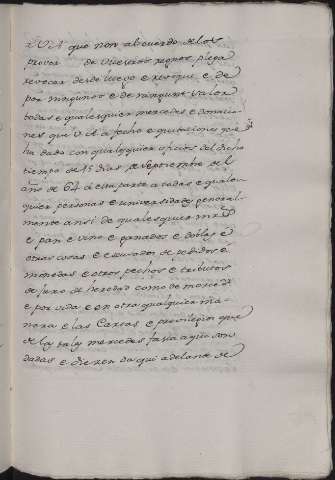 e VS.ª que non al cuerdo de los
procer de vuestros regnos plega
revocar desde luego e revoque e de
por ningunos e de ningunt valor
todas e qualesquier mercedes e donacio-
nes que VS.ª a fecho e quitaciones que
ha dado con qualesquier oficios del dicho
tiempo de 15 dias de Septiembre del
año de 64 a esta parte a todas e quales-
quier personas e universidades general-
mente ansi de qualesquier mrs
e pan e vino e ganados e doblas e
otras cosas e escusados de pedidos e
monedas e otros pechos e tributos
de juro de heredad como de merced
e por vida e en otra qualquier ma-
nera e las Cartas e privilegios que
de las tales mercedes fasta aqui son
dadas e dieren de aqui adelante de